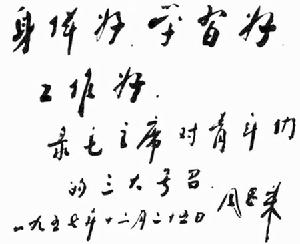 身体好.学習好
工作好.
录毛主席对青年们
的三大号召.周恩来
一九五七年十二月二十五日